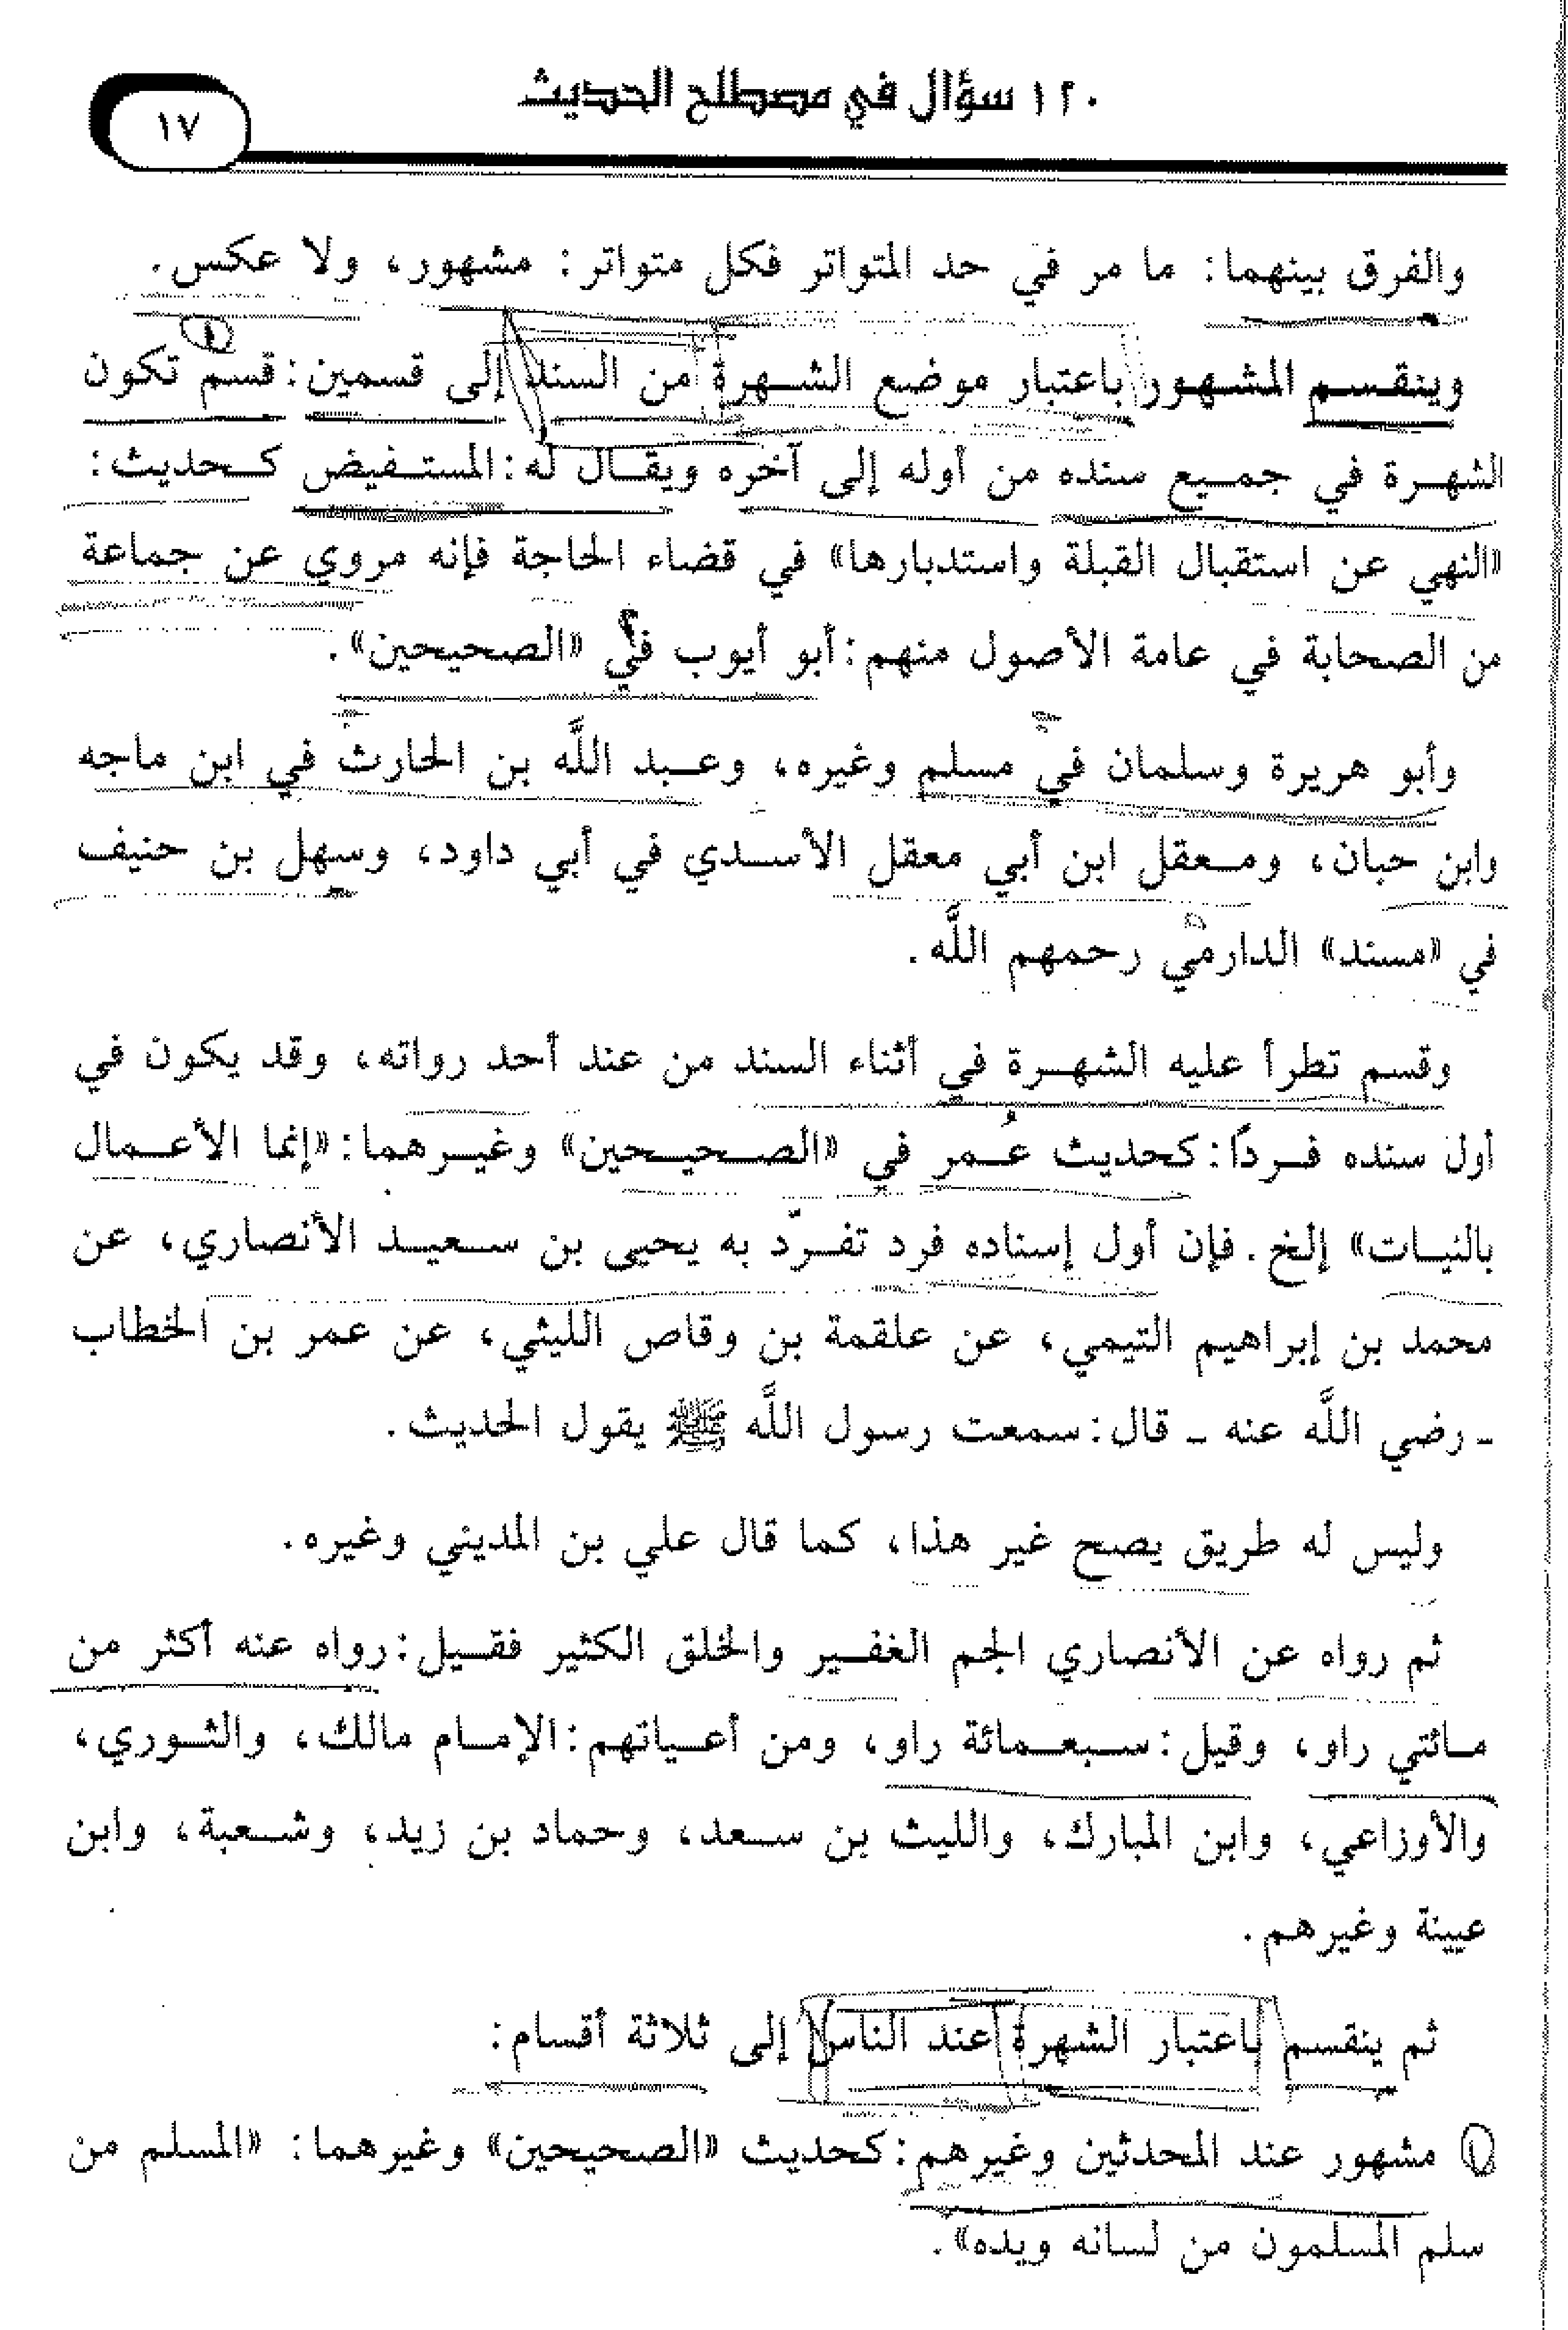 ١٢٠ سؤال في مصطلح الحديث
١٧
والفرق بينهما: ما مر في حد المتواتر فكل متواتر: مشهور، ولا عكس.
وينقسم المشهور باعتبار موضع الشهرة من السند إلى قسمين: قسم تكون
الشهرة في جميع سنده من أوله إلى آخره ويقال له: المستفيض كحديث:
«النهي عن استقبال القبلة واستدبارها» في قضاء الحاجة فإنه مروي عن جماعة
من الصحابة في عامة الأصول منهم: أبو أيوب في «الصحيحين».
وأبو هريرة وسلمان في مسلم وغيره، وعبد اللَّه بن الحارث في ابن ماجه
وابن حبان، ومعقل ابن أبي معقل الأسدي في أبي داود، وسهل بن حنيف
في «مسند» الدارمي رحمهم اللَّه.
وقسم تطرأ عليه الشهرة في أثناء السند من عند أحد رواته، وقد يكون في
أول سنده فردًا: كحديث عُمر في «الصحيحين» وغيرهما: «إنما الأعمال
بالنيات» إلخ. فإن أول إسناده فرد تفرّد به يحيى بن سعيد الأنصاري، عن
محمد بن إبراهيم التيمي، عن علقمة بن وقاص الليثي، عن عمر بن الخطاب
ـ رضي اللَّه عنه ـ قال: سمعت رسول اللَّه ﷺ يقول الحديث.
وليس له طريق يصح غير هذا، كما قال علي بن المديني وغيره.
ثم رواه عن الأنصاري الجم الغفير والخلق الكثير فقيل: رواه عنه أكثر من
مائتي راو، وقيل: سبعمائة راو، ومن أعياتهم: الإمام مالك، والثوري،
والأوزاعي، وابن المبارك، والليث بن سعد، وحماد بن زيد، وشعبة، وابن
عيينة وغيرهم.
ثم ينقسم باعتبار الشهرة عند الناس إلى ثلاثة أقسام:
١ مشهور عند المحدثين وغيرهم: كحديث «الصحيحين» وغيرهما: «المسلم من
سلم المسلمون من لسانه ويده».